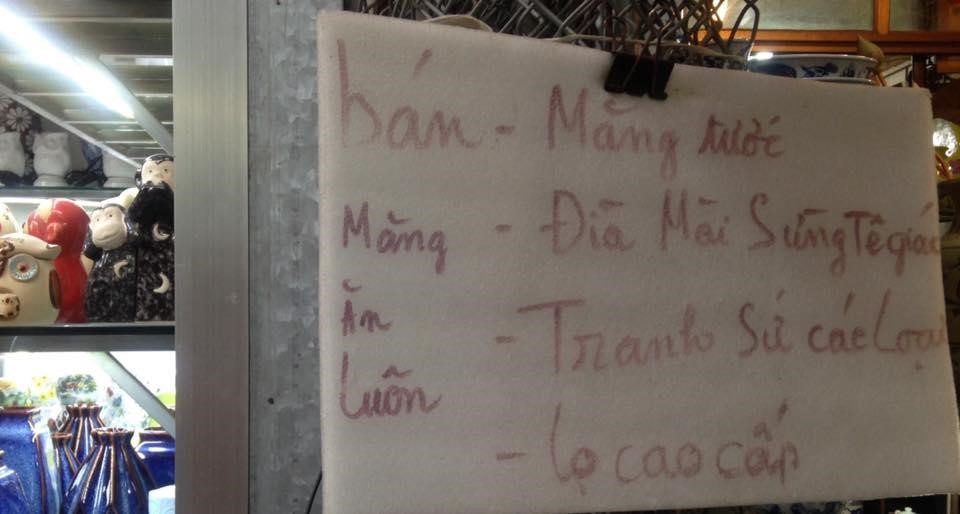 bán - Măng tước
Măng - Điã Mài Sừng Tê giác
Ăn
- Tranh Sứ các Loại
Luôn
- Lọ cao cấp